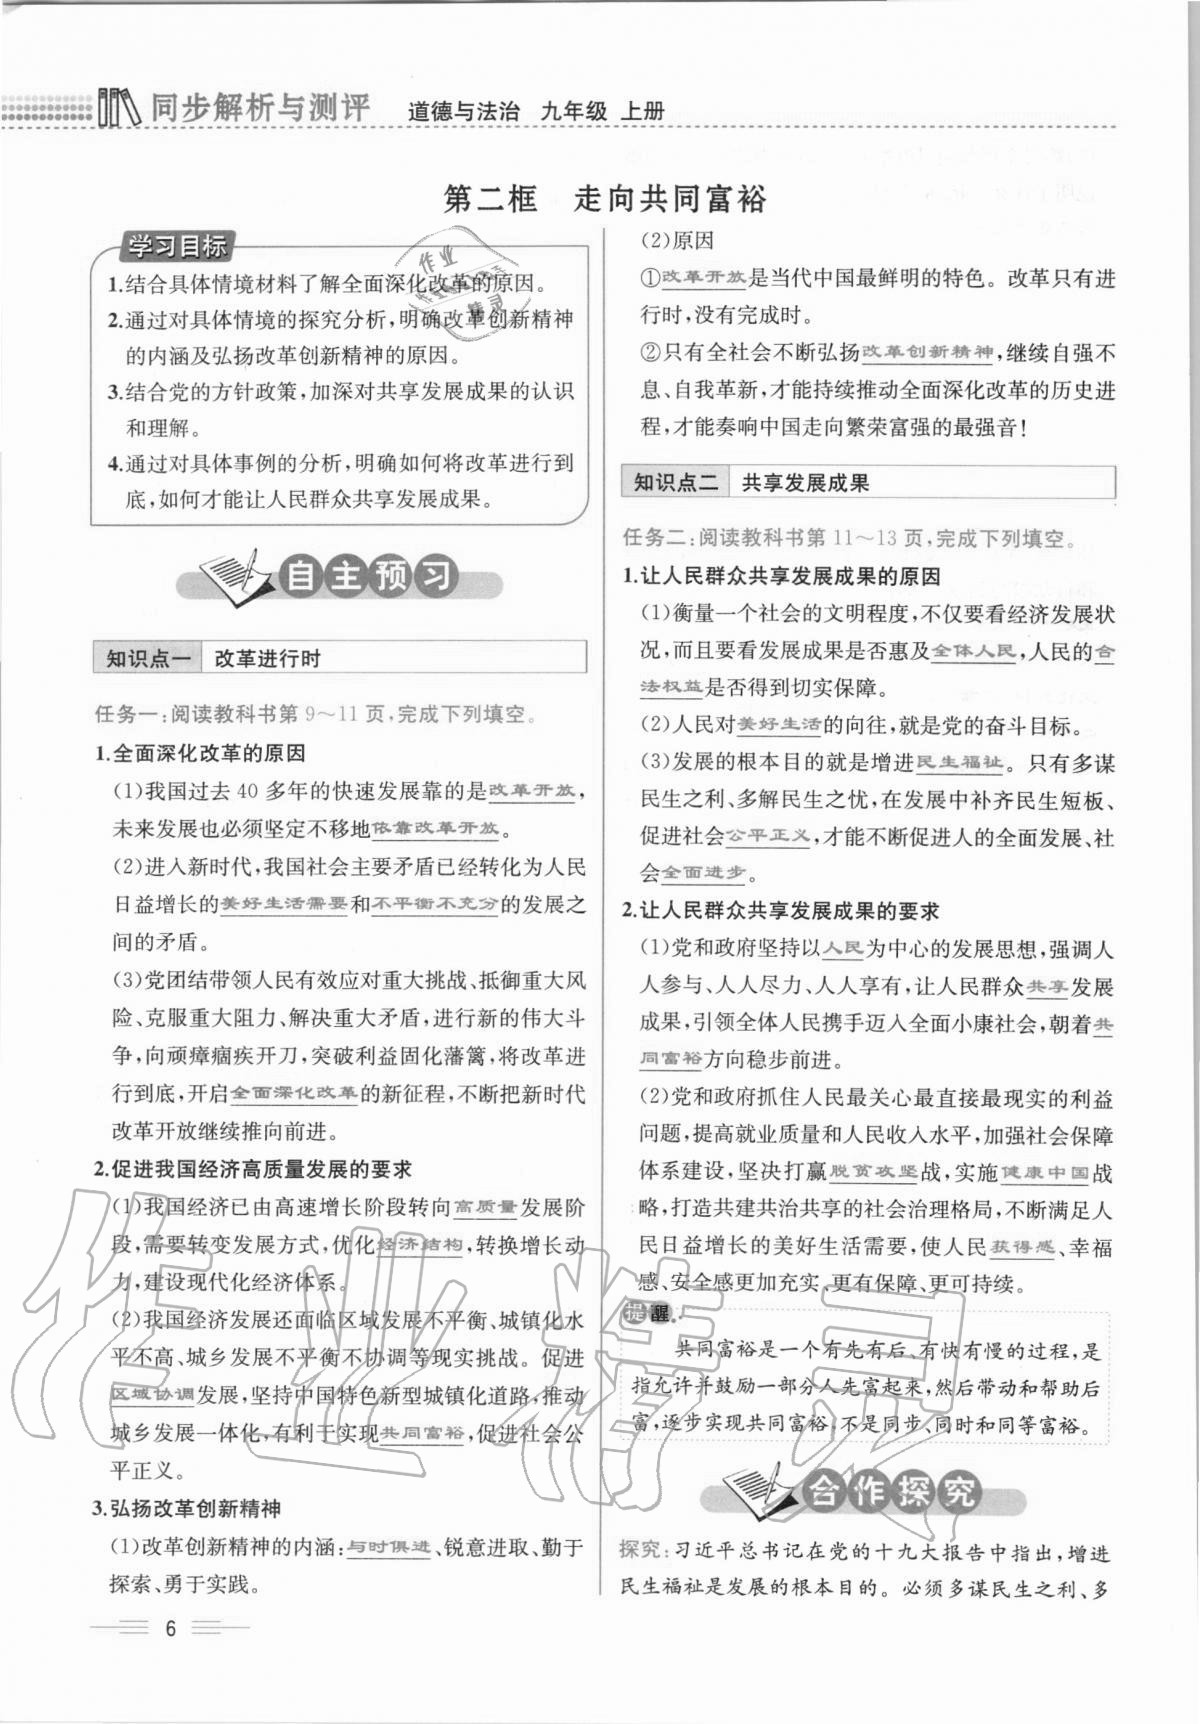 同步解析与测评 道德与法治 九年级 上册
第二框 走向共同富裕
学习目标
1.结合具体情境材料了解全面深化改革的原因。
2.通过对具体情境的探究分析,明确改革创新精神
的内涵及弘扬改革创新精神的原因。
3.结合党的方针政策,加深对共享发展成果的认识
和理解。
4.通过对具体事例的分析,明确如何将改革进行到
底,如何才能让人民群众共享发展成果。
自主预习
知识点一 改革进行时
任务一:阅读教科书第9～11页,完成下列填空。
1.全面深化改革的原因
(1)我国过去40多年的快速发展靠的是改革开放,
未来发展也必须坚定不移地依靠改革开放。
(2)进入新时代,我国社会主要矛盾已经转化为人民
日益增长的美好生活需要和不平衡不充分的发展之
间的矛盾。
(3)党团结带领人民有效应对重大挑战、抵御重大风
险、克服重大阻力、解决重大矛盾,进行新的伟大斗
争,向顽瘴痼疾开刀,突破利益固化藩篱,将改革进
行到底,开启全面深化改革的新征程,不断把新时代
改革开放继续推向前进。
2.促进我国经济高质量发展的要求
(1)我国经济已由高速增长阶段转向高质量发展阶
段,需要转变发展方式,优化经济结构,转换增长动
力,建设现代化经济体系。
(2)我国经济发展还面临区域发展不平衡、城镇化水
平不高、城乡发展不平衡不协调等现实挑战。促进
区域协调发展,坚持中国特色新型城镇化道路,推动
城乡发展一体化,有利于实现共同富裕,促进社会公
平正义。
3.弘扬改革创新精神
(1)改革创新精神的内涵:与时俱进、锐意进取、勤于
探索、勇于实践。
6
(2)原因
①改革开放是当代中国最鲜明的特色。改革只有进
行时,没有完成时。
②只有全社会不断弘扬改革创新精神,继续自强不
息、自我革新,才能持续推动全面深化改革的历史进
程,才能奏响中国走向繁荣富强的最强音!
知识点二 共享发展成果
任务二:阅读教科书第11～13页,完成下列填空。
1.让人民群众共享发展成果的原因
(1)衡量一个社会的文明程度,不仅要看经济发展状
况,而且要看发展成果是否惠及全体人民,人民的合
法权益是否得到切实保障。
(2)人民对美好生活的向往,就是党的奋斗目标。
(3)发展的根本目的就是增进民生福祉。只有多谋
民生之利、多解民生之忧,在发展中补齐民生短板、
促进社会公平正义,才能不断促进人的全面发展、社
会全面进步。
2.让人民群众共享发展成果的要求
(1)党和政府坚持以人民为中心的发展思想,强调人
人参与、人人尽力、人人享有,让人民群众共享发展
成果,引领全体人民携手迈入全面小康社会,朝着共
同富裕方向稳步前进。
(2)党和政府抓住人民最关心最直接最现实的利益
问题,提高就业质量和人民收入水平,加强社会保障
体系建设,坚决打赢脱贫攻坚战,实施健康中国战
略,打造共建共治共享的社会治理格局,不断满足人
民日益增长的美好生活需要,使人民获得感、幸福
感、安全感更加充实、更有保障、更可持续。
提醒
共同富裕是一个有先有后、有快有慢的过程,是
指允许并鼓励一部分人先富起来,然后带动和帮助后
富,逐步实现共同富裕,不是同步、同时和同等富裕。
合作探究
探究:习近平总书记在党的十九大报告中指出,增进
民生福祉是发展的根本目的。必须多谋民生之利、多
作业精灵